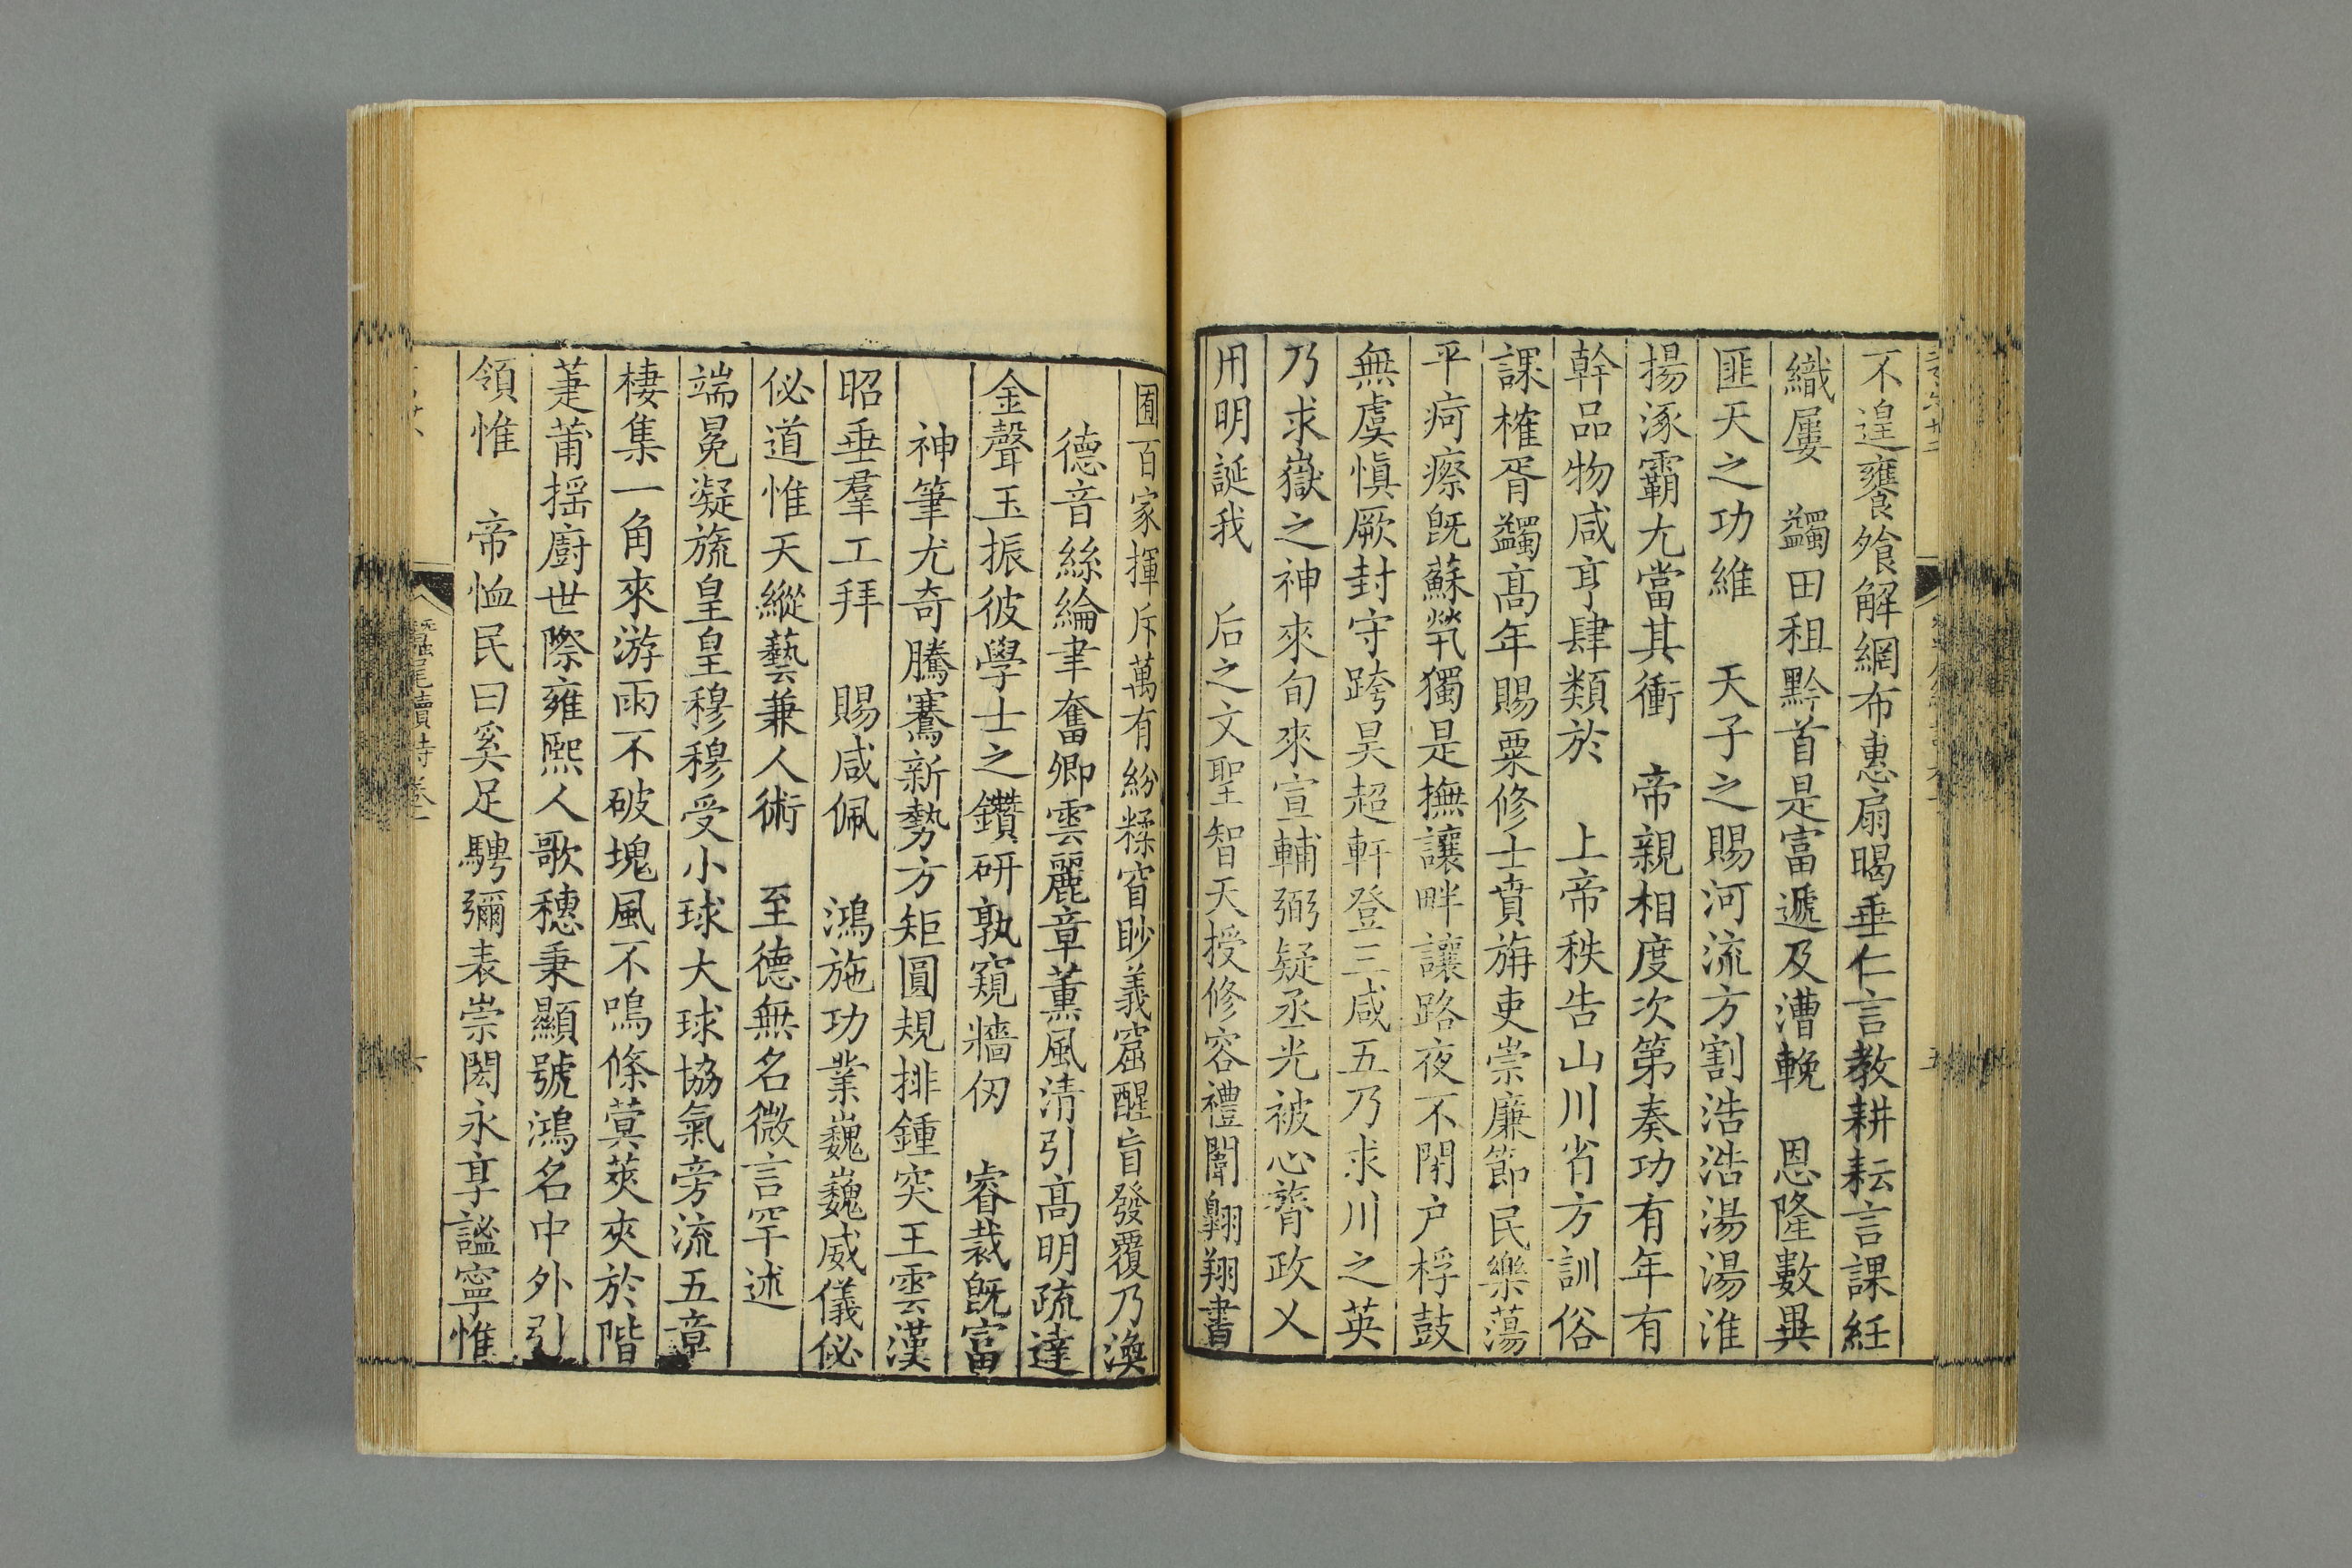 不遑饔飧解網布惠扇暍垂仁言教耕耘言課紝
織屢　蠲田租黔首是富遞及漕輓　恩隆數異
匪天之功維　天子之賜河流方割浩浩湯湯淮
揚涿霸尤當其衝　帝親相度次第奏功有年有
幹品物咸亨肆類於　上帝秩告山川省方訓俗
課榷胥蠲高年賜粟修士賁旃吏崇廉節民樂蕩
平疴瘵旣蘇煢獨是撫讓畔讓路夜不閉户桴鼓
無虞愼厥封守跨昊超軒登三咸五乃求川之英
乃求嶽之神來旬來宣輔弼疑丞光被心膂政乂
用明誕我　后之文聖智天授修容禮闈翺翔書
圃百家揮斥萬有紛糅窅眇義窟醒旨發覆乃渙
德音絲綸聿奮卿雲麗章薰風清引高明疏達
金聲玉振彼學士之鑽研孰窺牆仞　睿裁旣富
神筆尤奇騰騫新勢方矩圓規排鍾突王雲漢
昭垂羣工拜　賜咸佩　鴻施功業巍巍威儀佖
佖道惟天縱藝兼人術　至德無名微言罕述
端冕凝旒皇皇穆穆受小球大球協氣旁流五章
棲集一角來游雨不破塊風不鳴條蓂莢夾於階
萐莆揺廚世際雍熙人歌穗秉顯號鴻名中外引
領惟　帝恤民曰奚足騁彌表崇閎永享謐寧惟
蠶尾續詩卷一